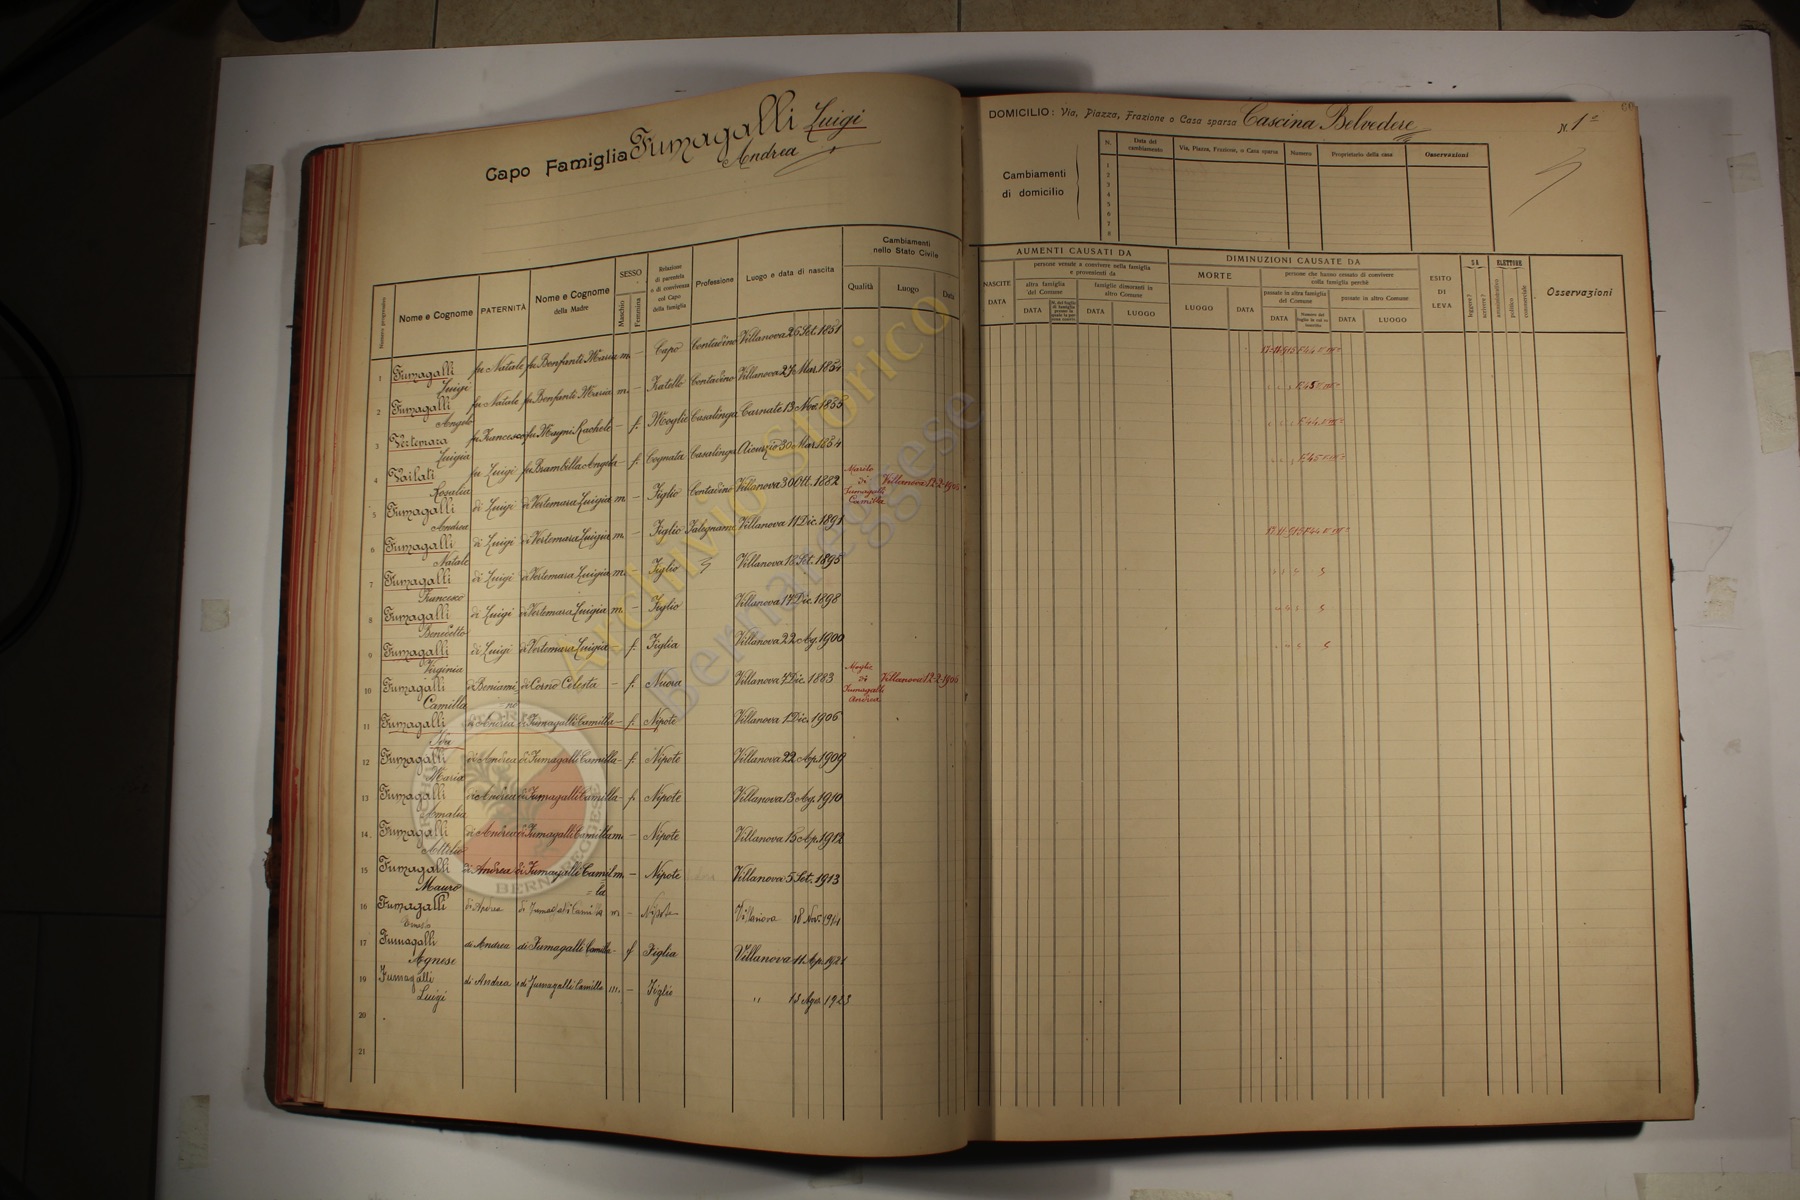 Capo Famiglia Fumagalli Luigi
Andrea
Numero progressivo
Nome e Cognome
PATERNITÀ
Nome e Cognome
della Madre
SESSO
Maschio
Femmina
Relazione
di parentela
o di convivenza
col Capo
della famiglia
Professione
Luogo e data di nascita
Cambiamenti
nello Stato Civile
Qualità
Luogo
Data
1 Fumagalli Luigi fu Natale fu Bonfanti Maria m. – Capo Contadino Villanova 25 Set. 1851
2 Fumagalli Angelo fu Natale fu Bonfanti Maria m. – Fratello Contadino Villanova 27 Mar. 1854
3 Vertemara Luigia fu Francesco fu Magni Rachele – f. Moglie Casalinga Carnate 13 Nov. 1855
4 Vailati Rosalia fu Luigi fu Brambilla Angela – f. Cognata Casalinga Aicurzio 30 Mar. 1854
5 Fumagalli Andrea di Luigi di Vertemara Luigia m. – Figlio Contadino Villanova 30 Ott. 1882 Marito di Fumagalli Camilla Villanova 12-2-1906
6 Fumagalli Natale di Luigi di Vertemara Luigia m. – Figlio Falegname Villanova 11 Dic. 1891
7 Fumagalli Francesco di Luigi di Vertemara Luigia m. – Figlio Villanova 18 Set. 1895
8 Fumagalli Benedetto di Luigi di Vertemara Luigia m. – Figlio Villanova 17 Dic. 1898
9 Fumagalli Virginia di Luigi di Vertemara Luigia f. Figlia Villanova 22 Ag. 1900
10 Fumagalli Camilla di Beniamino di Corno Celesta – f. Nuora Villanova 7 Dic. 1883 Moglie di Fumagalli Andrea Villanova 12-2-1906
11 Fumagalli Ida di Andrea di Fumagalli Camilla – f. Nipote Villanova 1 Dic. 1906
12 Fumagalli Maria di Andrea di Fumagalli Camilla – f. Nipote Villanova 22 Ap. 1909
13 Fumagalli Amalia di Andrea di Fumagalli Camilla – f. Nipote Villanova 13 Ag. 1910
14 Fumagalli Attilio di Andrea di Fumagalli Camilla m. – Nipote Villanova 15 Ap. 1912
15 Fumagalli Mauro di Andrea di Fumagalli Camilla m. – Nipote Villanova 5 Set. 1913
16 Fumagalli di Andrea di Fumagalli Camilla m – Nipote Villanova 18 Nov.
17 Fumagalli Agnese di Andrea di Fumagalli Camilla – f Figlia Villanova 11 Ap. 1921
19 Fumagalli Luigi di Andrea di Fumagalli Camilla m. – Figlio " 13 Ago 1923
20
21
DOMICILIO: Via, Piazza, Frazione o Casa sparsa Cascina Belvedere N. 1
60
Cambiamenti
di domicilio
N.
Data del
cambiamento
Via, Piazza, Frazione, o Casa sparsa
Numero
Proprietario della casa
Osservazioni
1
2
3
4
5
6
7
8
AUMENTI CAUSATI DA
NASCITE
DATA
persone venute a convivere nella famiglia
e provenienti da
altra famiglia
del Comune
DATA
famiglie dimoranti in
altro Comune
DATA
LUOGO
DIMINUZIONI CAUSATE DA
MORTE
LUOGO
DATA
persone che hanno cessato di convivere
colla famiglia perchè
passate in altra famiglia
del Comune
DATA
passate in altro Comune
DATA
LUOGO
ESITO
DI
LEVA
SA
leggere?
scrivere?
ELETTORE
amministrativo
politico
commerciale
Osservazioni
Archivio Storico
Bernareggese
ARCHIVIO STORICO
BERNAREGGESE